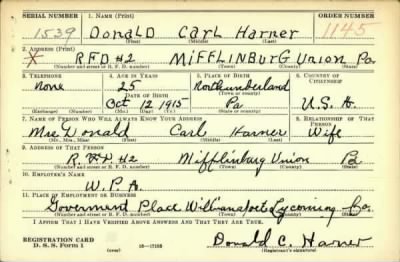 SERIAL NUMBER 1. NAME (Print) ORDER NUMBER
1539 Donald Carl Harner 1145
(First) (Middle) (Last)
2. ADDRESS (Print)
X R.F.D #2 Mifflinburg Union Pa.
(Number and street or R. F. D. number) (Town) (County) (State)
3. TELEPHONE 4. AGE IN YEARS 5. PLACE OF BIRTH 6. COUNTRY OF CITIZENSHIP
None 25 Northumberland
DATE OF BIRTH (Town or county)
Oct 12 1915 Pa U.S.A.
(Exchange) (Number) (Mo.) (Day) (Yr.) (State or country)
7. NAME OF PERSON WHO WILL ALWAYS KNOW YOUR ADDRESS 8. RELATIONSHIP OF THAT PERSON
Mrs. Donald Carl Harner Wife
(Mr., Mrs., Miss) (First) (Middle) (Last)
9. ADDRESS OF THAT PERSON
R.F.D #2 Mifflinburg Union Pa.
(Number and street or R. F. D. number) (Town) (County) (State)
10. EMPLOYER'S NAME
W.P.A.
11. PLACE OF EMPLOYMENT OR BUSINESS
Goverment Place Williamsport Lycoming Co.
(Number and street or R. F. D. number) (Town) (County) (State)
I AFFIRM THAT I HAVE VERIFIED ABOVE ANSWERS AND THAT THEY ARE TRUE.
REGISTRATION CARD
D. S. S. Form 1 (over) 16—17105 Donald C. Harner
(Registrant's signature)